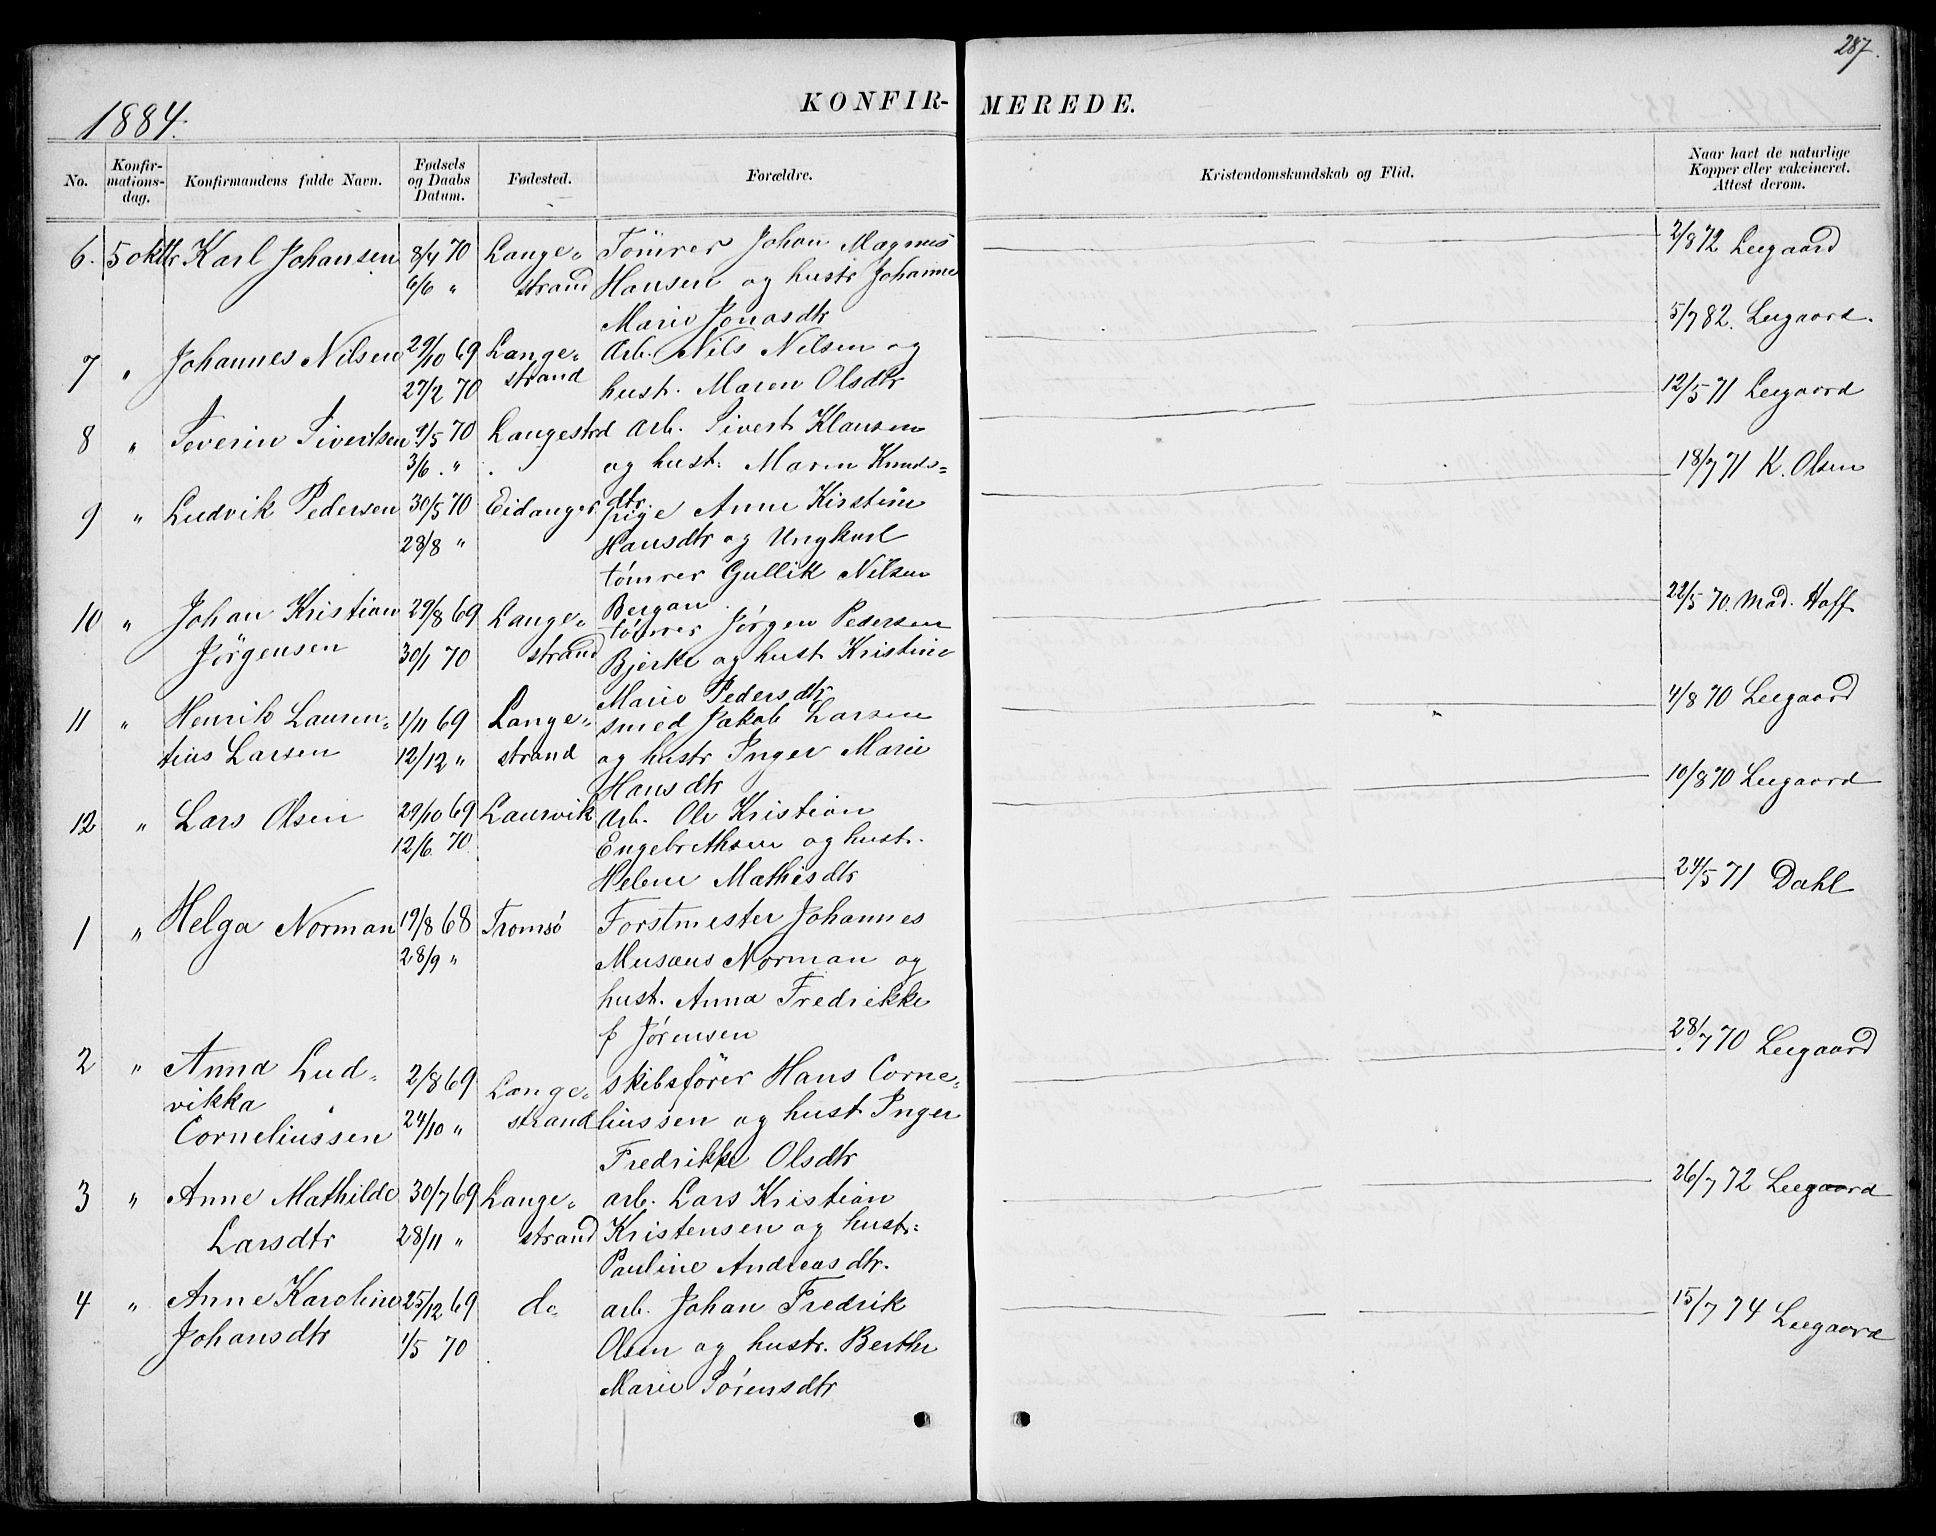 287.
1884.
KONFIR- MEREDE.
No.
Konfir-
mations-
dag.
Konfirmandens fulde Navn.
Fødsels
og Daabs
Datum.
Fødested.
Forældre.
Kristendomskundskab og Flid.
Naar havt de naturlige
Kopper eller vakcineret.
Attest derom.
6. 5 oktbr Karl Johansen 8/4 70 Lange- Tömrer Johan Magnus 2/8 72 Leegaard
6/6 " strand Hansen og hustr Johanne
Marie Jonasdtr 5/7 82. Leegaard.
7 " Johannes Nilsen 29/10 69 Lange- Arb. Nils Nilsen og
27/2 70 strand hust. Maren Olsdtr 12/5 71 Leegaard
8 " Severin Sivertsen 9/5 70 Langestrd Arb. Sivert Klausen
3/6 " og hust. Maren Knuds- 18/7 71 K. Olsen
dtr.
9 " Ludvik Pedersen 30/5 70 Eidanger pige Anne Kirstine
28/8 " Hansdtr og Ungkarl
tömrer Gullik Nilsen
Bergan
10 " Johan Kristian 29/8 69 Lange- tömrer Jørgen Pedersen 22/5 70. Mad. Hoff
Jörgensen 30/1 70 strand Bjerke og hust Kristine
Marie Pedersdtr
11 " Henrik Lauren- 1/11 69 Lange- smed Jakob Larsen 4/8 70 Leegaard
tius Larsen 12/12 " strand og hustr Inger Marie
Hansdtr 10/8 70 Leegaard
12 " Lars Olsen 29/10 69 Laurvik Arb. Ole Kristian
12/6 70 Engebrethsen og hust.
Helene Mathisdtr 24/5 71 Dahl
1 " Helga Norman 19/8 68 Tromsø Forstmester Johannes
28/9 " Musæus Norman og
hust. Anna Fredrikke
f Jørensen
2 " Anna Lud- 2/8 69 Lange- skibsfører Hans Corne- 28/7 70 Leegaard
vikka
Corneliussen 24/10 " strand liussen og hust Inger
Fredrikke Olsdtr
3 " Anne Mathilde 30/7 69 Lange- arb. Lars Kristian 26/7 72 Leegaard
Larsdtr 28/11 " strand Kristensen og hustr.
Pauline Andreasdtr.
4 " Anne Karoline 25/12 69 do arb. Johan Fredrik 15/7 74 Leegaard
Johansdtr 1/5 70 Olsen og hustr. Berthe
Marie Sörensdtr